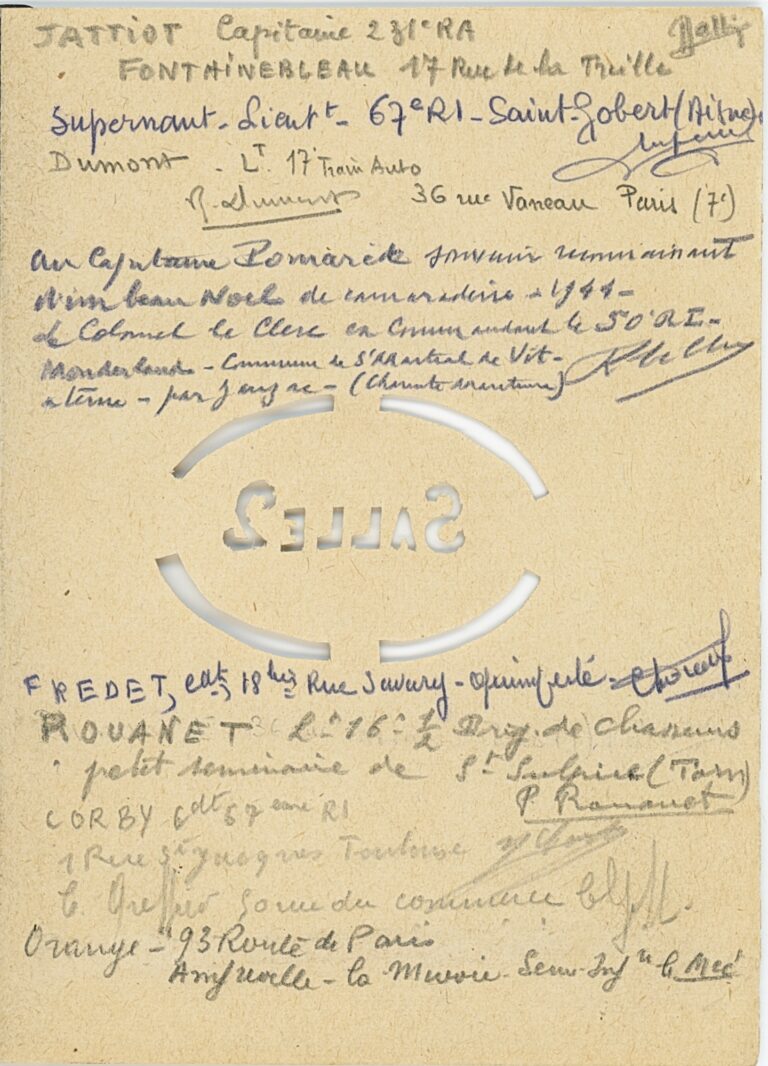 JATTIOT Capitaine 231e RA
FONTAINEBLEAU 17 Rue de la Treille
Supernaut - Lieutt - 67e RI - Saint-Gobert (Aisne)
Dumont - Lt 17e Train Auto
R. Dumont 36 rue Vaneau Paris (7e)
Au Capitaine Pomarède souvenir reconnaissant
d'un beau Noel de camaraderie - 1944 -
le Colonel le Clerc en Commandant le 50e RI -
- Commune de St Martial de Vit-
aterne - par Jonzac - (Charente Maritime)
SALLE 2
FREDET, 18bis Rue Savary - Quimperlé -
ROUANET Lt 16e 1/2 Brig. de Chasseurs
petit seminaire de St Sulpice (Tarn)
P. Rouanet
CORBY 67eme RI
1 Rue St Jacques Toulouse
du commerce
Orange - 93 Route de Paris
Amfreville - la Mivoie - Seine-Infre